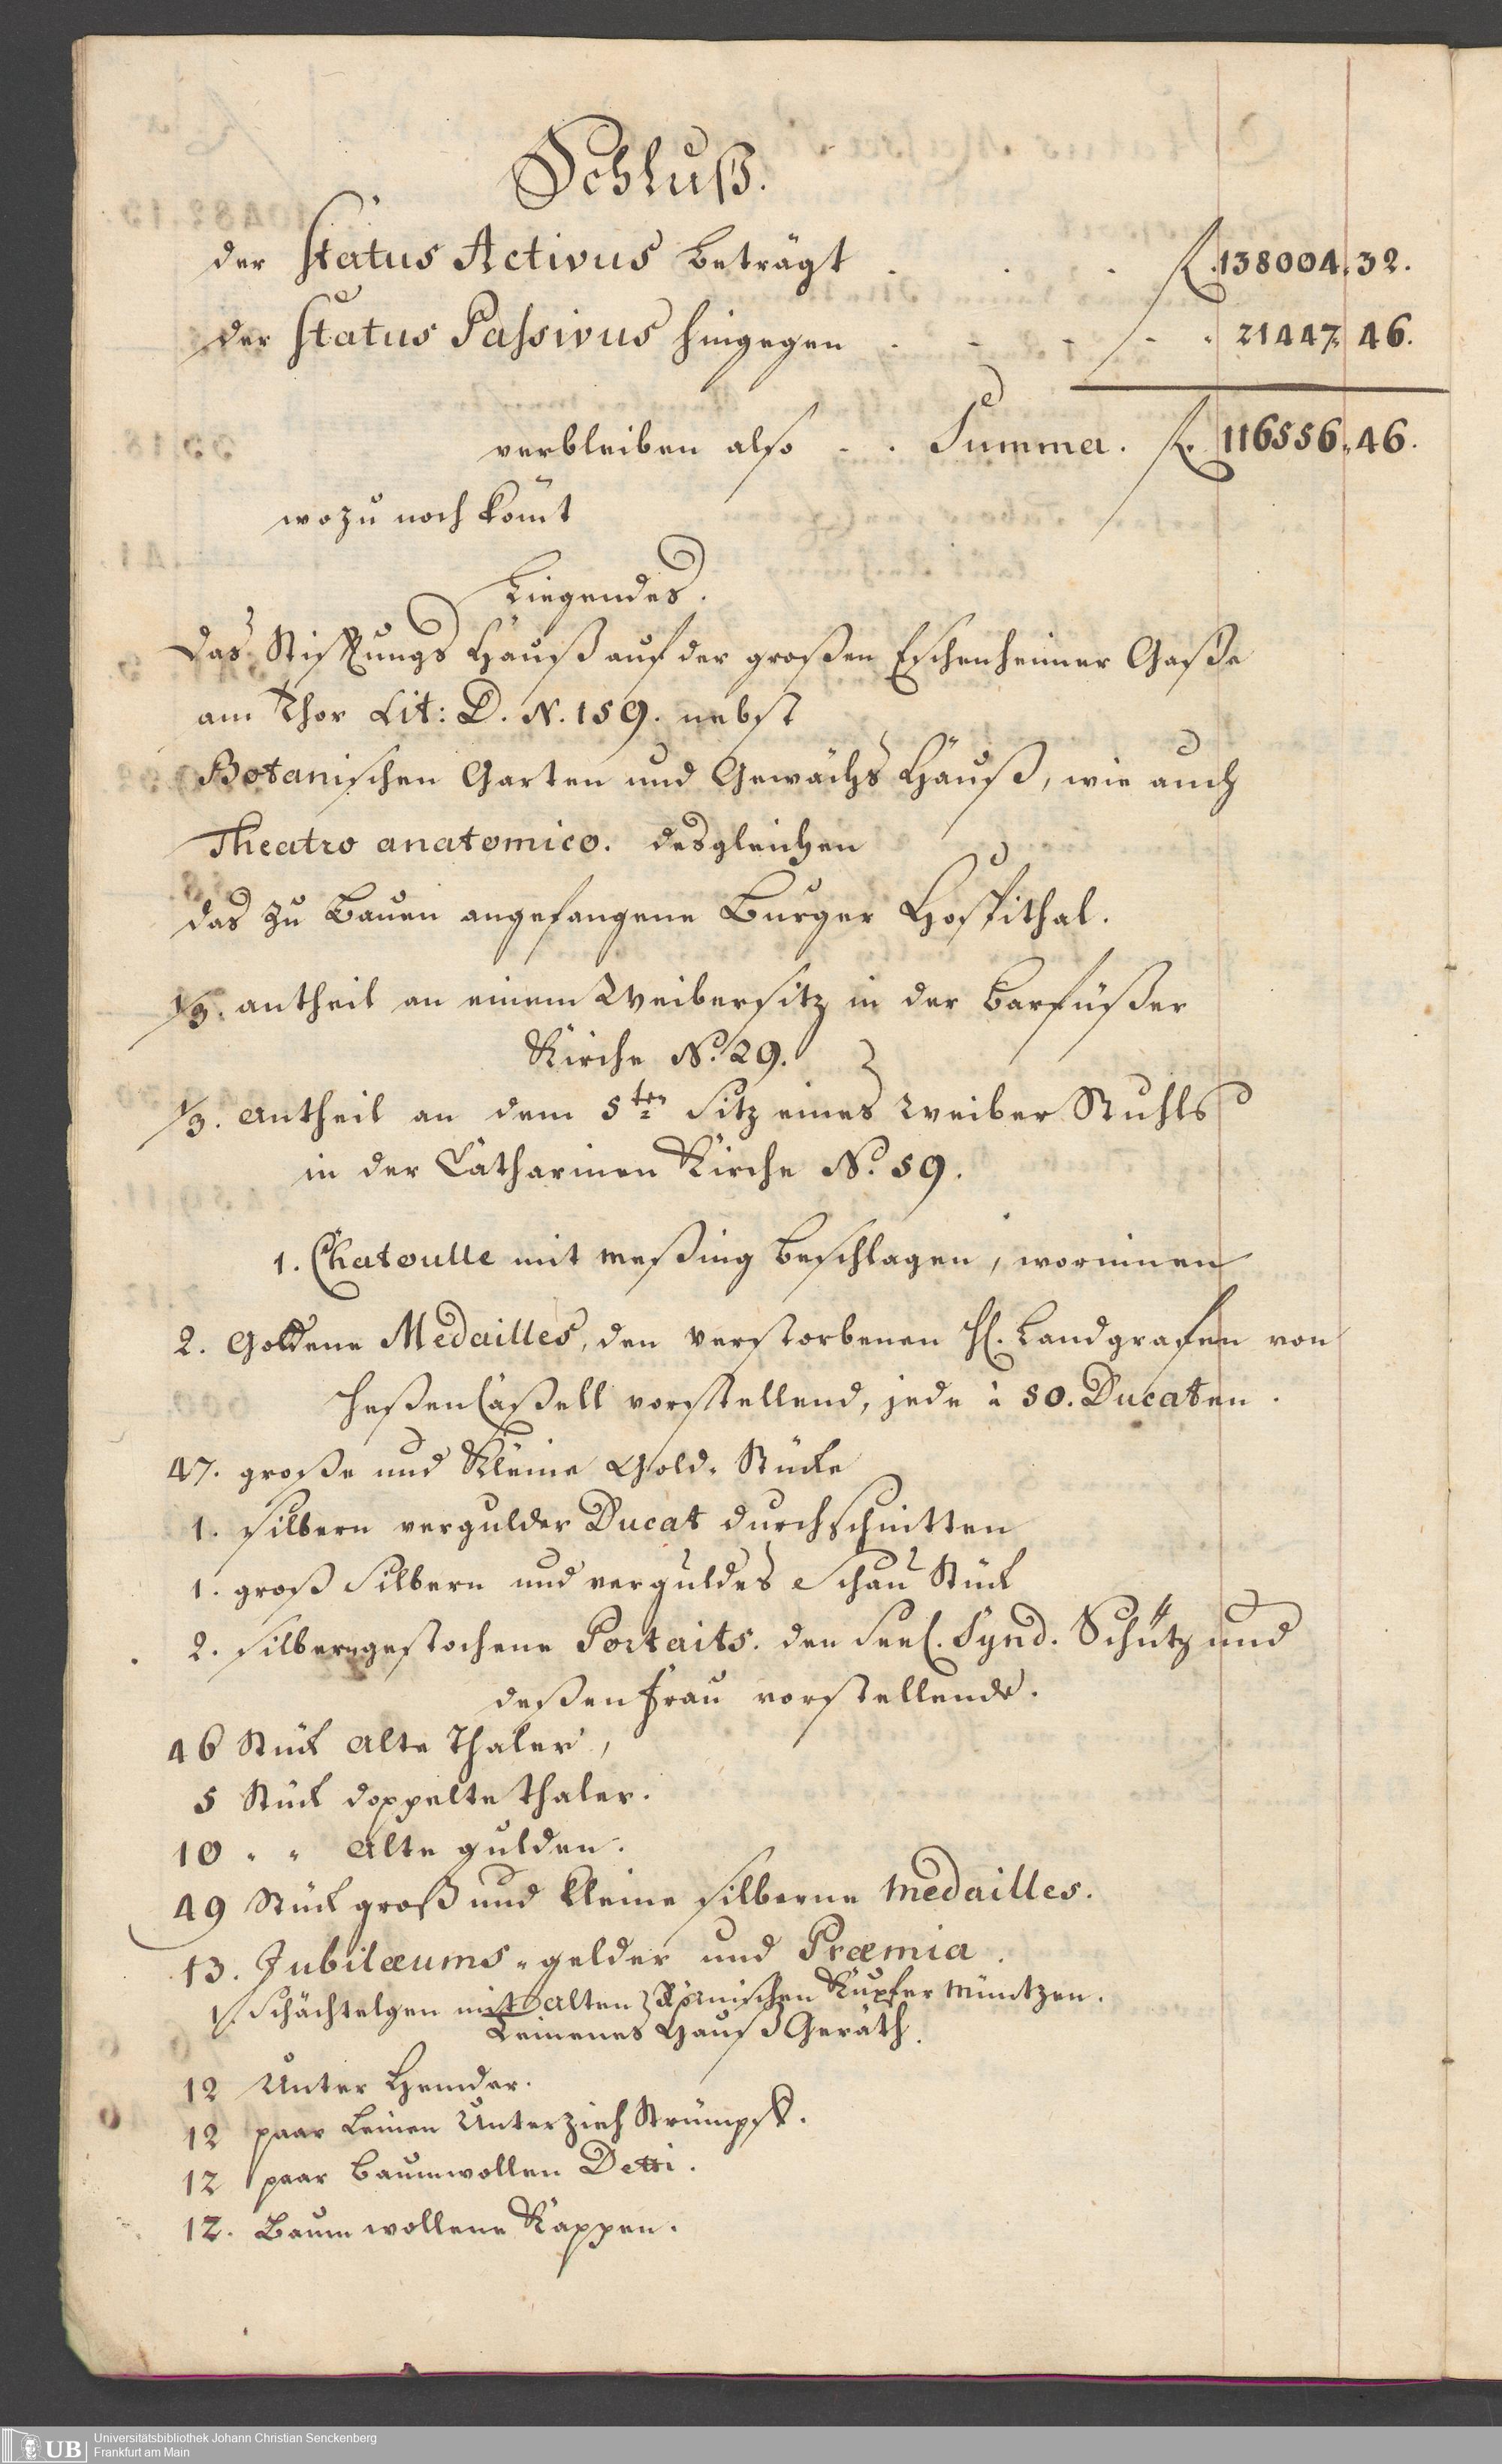 Schluß.
der Status Activus beträgt . . . fl. 138004. 32.
der Status Passivus hingegen . - - - . 21447. 46.
verbleiben also - . Summa. fl. 116556. 46.
wozu noch kom̄t
Liegendes.
Das Stifftungs Hauß auf der großen Eschenheimer Gaße
am Thor Lit: D. N. 159. nebst
Botanischen Garten und Gewächs Hauß, wie auch
Theatro anatomico. desgleichen
das zu Bauen angefangene Burger Hospithal.
1/3. antheil an einem Weibersitz in der Barfüßer
Kirche No. 29.
1/3. Antheil an dem 5ten Sitz eines Weiber Stuhls
in der Catharinen Kirche No. 59.
1. Chatoulle mit meßing beschlagen, worinnen
2. Goldene Medailles, den verstorbenen H. Landgrafen von
Heßen Caßell vorstellend, jede à 50. Ducaten.
47. große und Kleine Gold-Stücke
1. silbern vergulder Ducat durchschnitten
1. groß Silbern und verguldes Schau Stück
2. silbern gestochene Portaits. den Seel. Synd. Schütz und
deßen Frau vorstellende.
46 Stück Alte Thaler,
5 Stück doppelte thaler.
10 " " Alte gulden.
49 Stück groß und kleine silberne Medailles.
13. Jubilæums-gelder und Præmia.
1. Schächtelgen mit Alten Römischen Kupfer Müntzen.
Leinenes Hauß Geräth.
12 Unter Hemder.
12 paar Leinen Unterzieh Strümpff.
12 paar Baumwollen Detti.
12. Baumwollene Kappen.
UB
Universitätsbibliothek Johann Christian Senckenberg
Frankfurt am Main